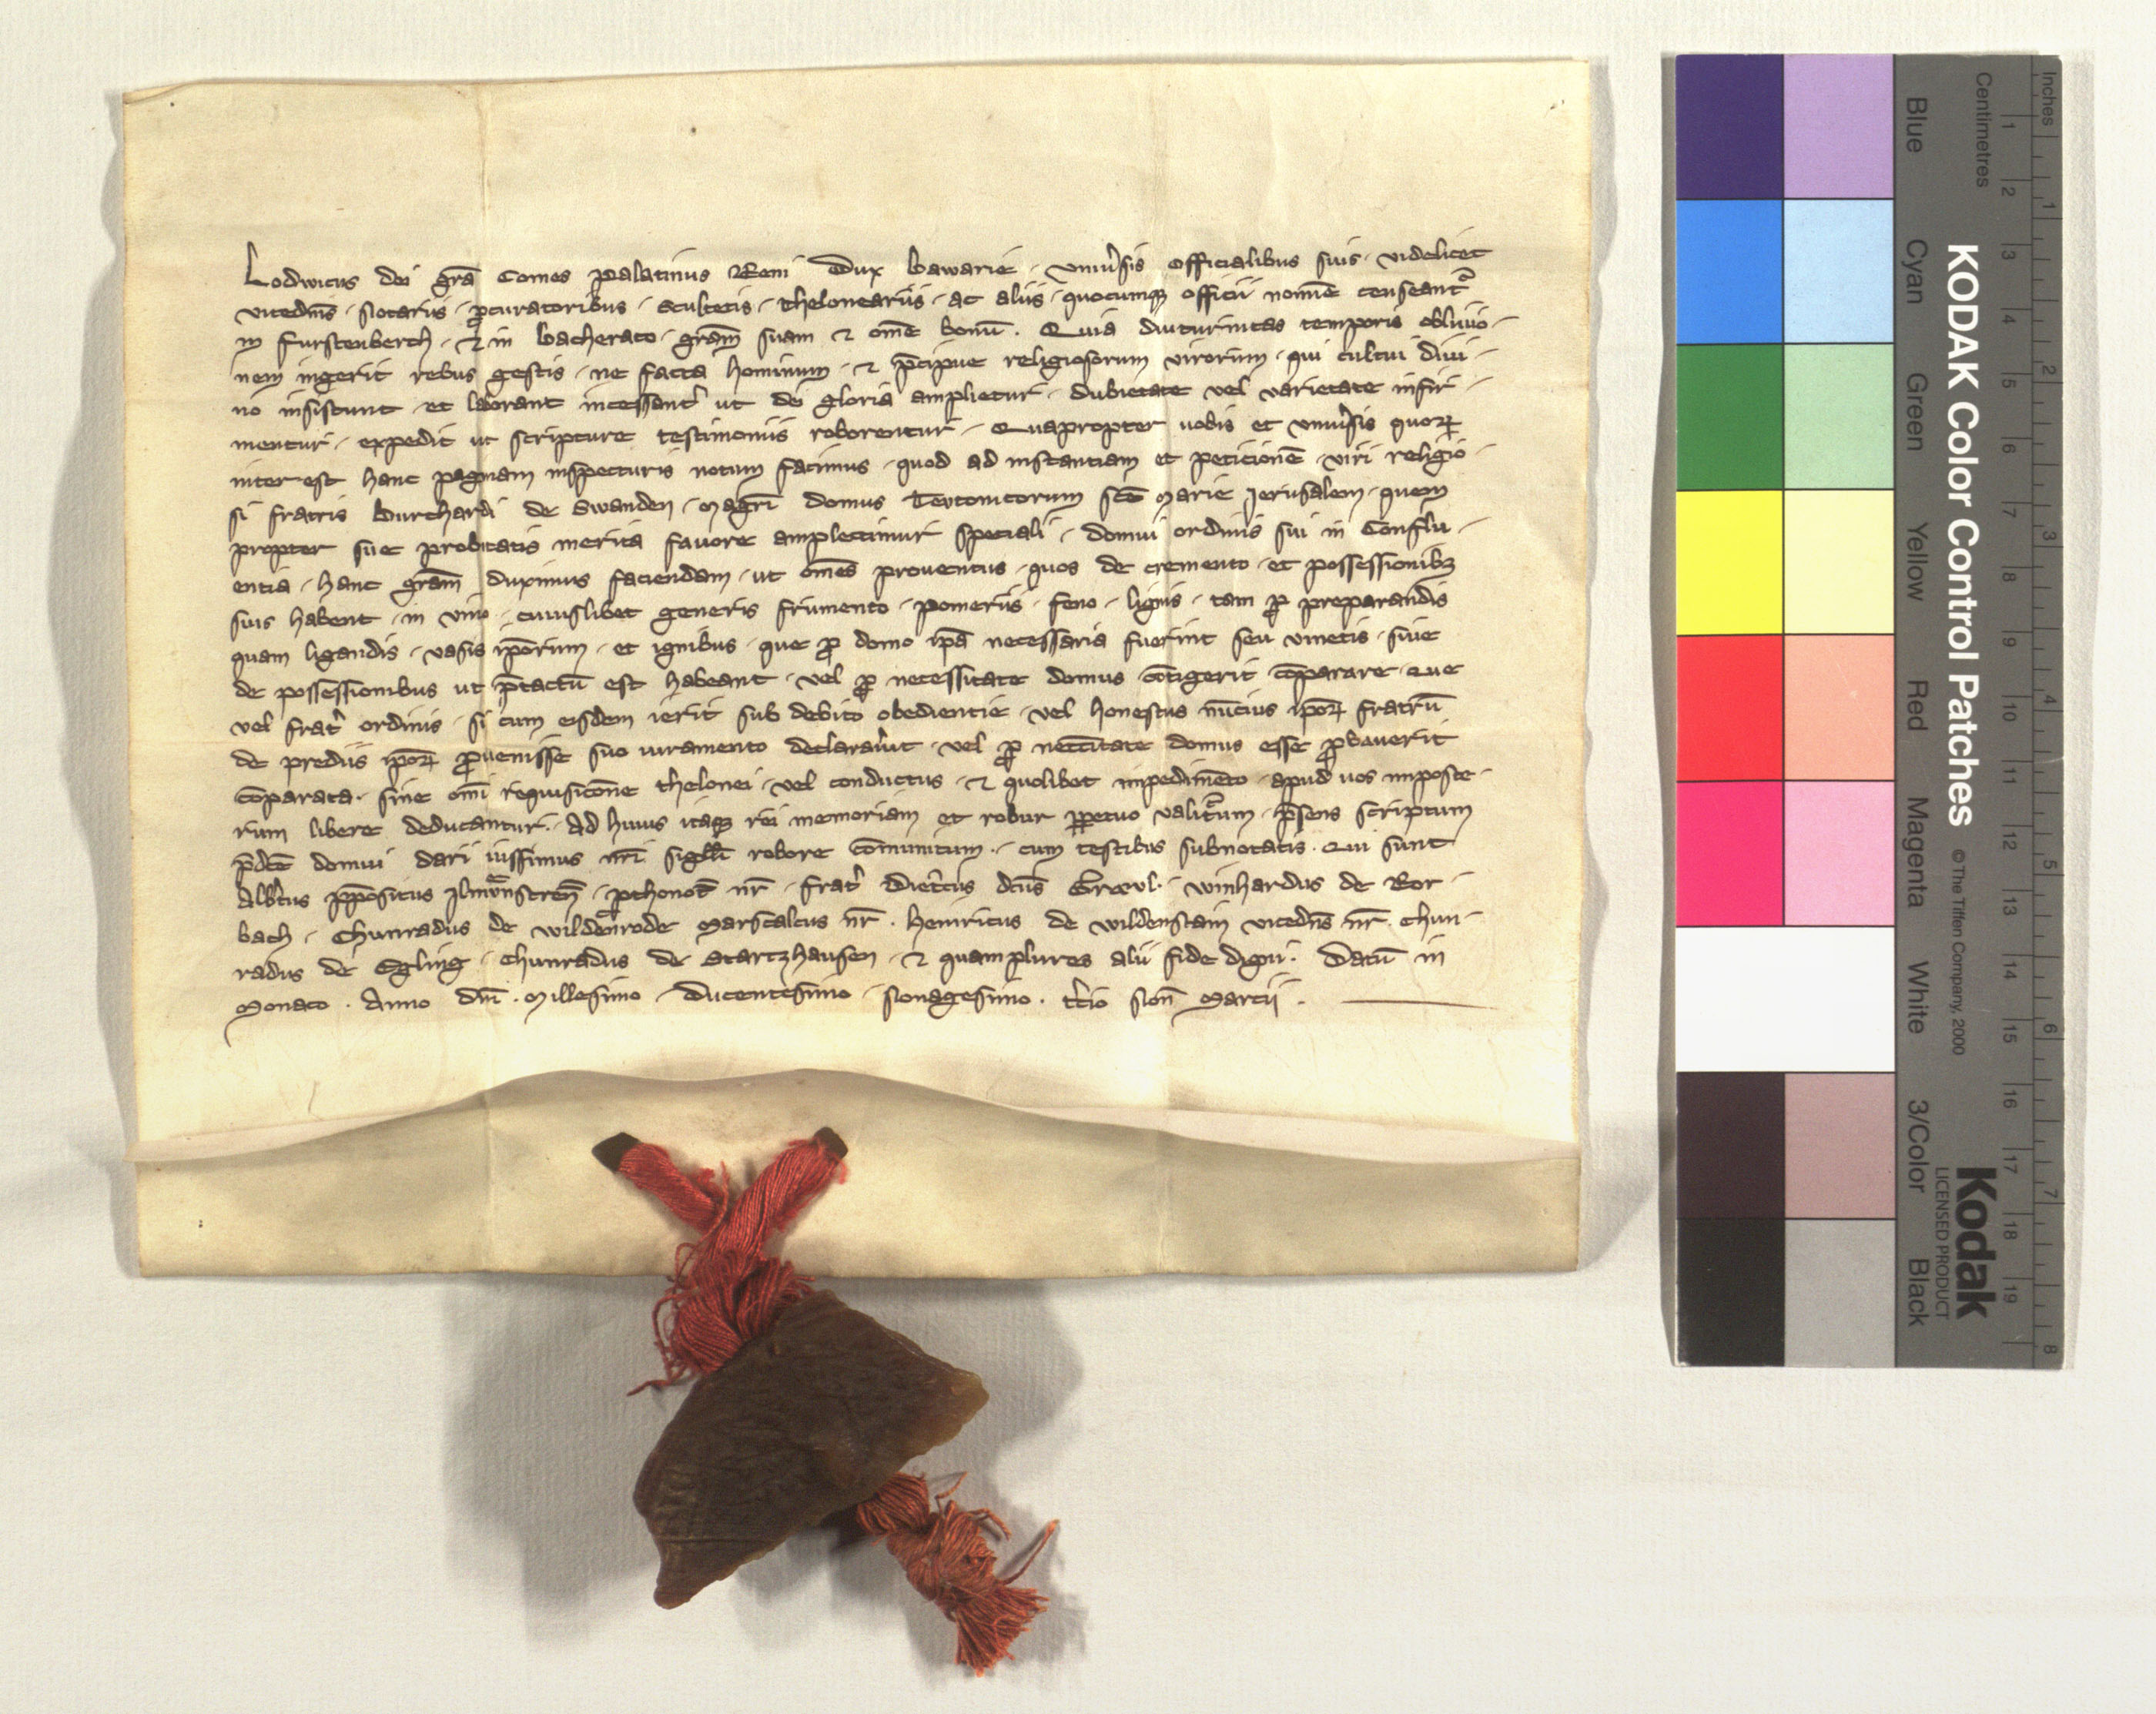 Lodwicus dei gr̄a Comes Palatinus Reni Dux Bawarie · vniu̾sis Officialibus suis · videlicet
vicedn̄is · Notariis · ꝓcuratoribus · Scultetis · Theloneariis · ac aliis · quocumqꝫ officii nomīe censeant᷑
in Furstenberch · ⁊ in Bacheraco · gr̄am suam ⁊ om̄e bonū · Quia diuturnitas temporis obliuio-
nem ingerit rebus gestis · ne facta hominum · ⁊ p̄cipue religiosorum virorum · qui cultui diui-
no insistunt et laborant incessant̾ ut dei gloria amplietur · dubietate vel varietate infir-
mentur · expedit ut scripture testimoniis roborentur · Quapropter uobis et vniu̾sis quoꝝ
interest hanc paginam inspecturis notum facimus · quod ad instantiam et peticionē viri religio-
si fratris Burchardi de Swanden · Magr̄i domus Teutonicorum sc̄e Marie Jerusalem · quem
propter sue probitatis merita fauore amplectimur speciali · domui ordinis sui in Conflu-
entia · hanc gr̄am duximus faciendam · ut om̄es prouentus · quos de cremento et possessionibꝫ
suis habent · in vino · cuiuslibet generis frumento · pomeriis · feno · lignis · tam ꝓ preparandis
quam ligandis · vasis ip̄orum · et ignibus · que ꝓ domo ip̄a necessaria fuerint seu vinetis · siue
de possessionibus ut p̄tactū est habeant · vel ꝓ necessitate domus cōtigerit cōparare · que
vel frat̾ ordinis · si cum eisdem ierit sub debito obedientie · vel honestus nūcius ip̄oꝝ fratrū
de prediis ip̄oꝝ ꝓuenisse suo iuramento declarau̾it · vel ꝓ necc̄itate domus esse ꝓbauerit
cōparata · sine om̄i requisicōne thelonei · vel conductus · ⁊ quolibet impedimēto · apud uos imposte-
rum libere deducantur · Ad huius itaqꝫ rei memoriam et robur ꝑpetuo valit᷑um · p̄sens scriptum
p̄dc̄e domui dari iussimus nr̄i sigilli robore cōmunitum · cum testibus subnotatis · Qui sunt
Alb̾tus p̄positus Jlmv̄nstren̄ · ꝓthonot̄ nr̄ · frat̾ Diet̾cus dc̄us · Winhardus de Ror-
bach · Chunradus de Wildenrode Marscalcus nr̄ · Heinricus de Wildenstain vicedn̄s nr̄ · Chun-
radus de Egling · Chunradus de Startzhausen · ⁊ quamplures alii fide digni · Datū in
Monaco · Anno dn̄i · Millesimo · Ducentesimo · Nonagesimo · t̾cio Non̄ Marcij ·
KODAK Color Control Patches © The Tiffen Company, 2000
Kodak
LICENSED PRODUCT
Blue Cyan Green Yellow Red Magenta White 3/Color Black
Inches 1 2 3 4 5 6 7 8
Centimetres 1 2 3 4 5 6 7 8 9 10 11 12 13 14 15 16 17 18 19